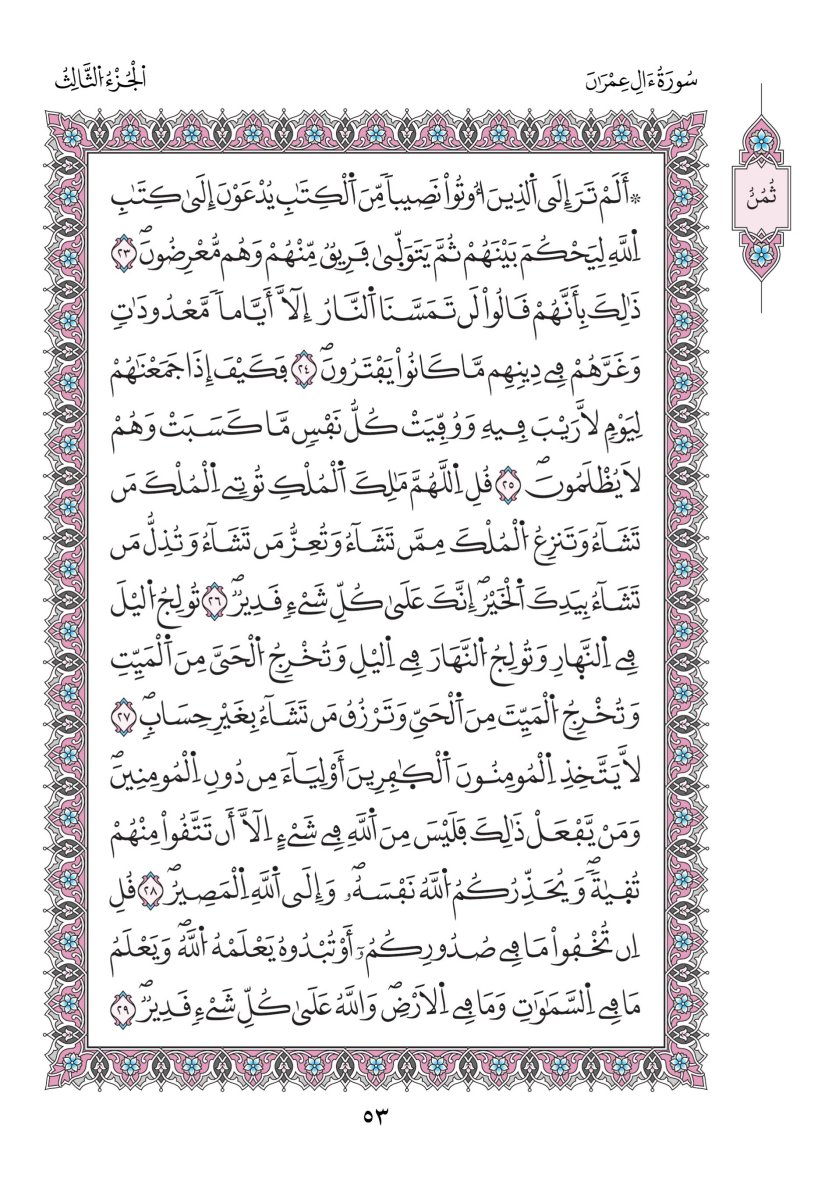 سُورَةُ ءَالِ عِمْرَٰنَ
اَ۬لْجُزْءُ اُ۬لثَّالِثُ
ثُمُنُ
۞أَلَمْ تَرَ إِلَى اَ۬لذِينَ أُ۟وتُواْ نَصِيباٗ مِّنَ اَ۬لْكِتَٰبِ يُدْعَوْنَ إِلَىٰ كِتَٰبِ
اِ۬للَّهِ لِيَحْكُمَ بَيْنَهُمْ ثُمَّ يَتَوَلّ۪ىٰ فَرِيقٞ مِّنْهُمْ وَهُم مُّعْرِضُونَۖ ٢٣
ذَٰلِكَ بِأَنَّهُمْ قَالُواْ لَن تَمَسَّنَا اَ۬لنَّارُ إِلَّآ أَيَّاماٗ مَّعْدُودَٰتٖ
وَغَرَّهُمْ فِے دِينِهِم مَّا كَانُواْ يَفْتَرُونَۖ ٢٤ فَكَيْفَ إِذَا جَمَعْنَٰهُمْ
لِيَوْمٖ لَّا رَيْبَ فِيهِ وَوُفِّيَتْ كُلُّ نَفْسٖ مَّا كَسَبَتْ وَهُمْ
لَا يُظْلَمُونَۖ ٢٥ قُلِ اِ۬للَّهُمَّ مَٰلِكَ اَ۬لْمُلْكِ تُوتِے اِ۬لْمُلْكَ مَن
تَشَآءُ وَتَنزِعُ اُ۬لْمُلْكَ مِمَّن تَشَآءُ وَتُعِزُّ مَن تَشَآءُ وَتُذِلُّ مَن
تَشَآءُ بِيَدِكَ اَ۬لْخَيْرُۖ إِنَّكَ عَلَىٰ كُلِّ شَےْءٖ قَدِيرٞۖ ٢٦ تُولِجُ اُ۬ليْلَ
فِے اِ۬لنَّه۪ارِ وَتُولِجُ اُ۬لنَّهَارَ فِے اِ۬ليْلِ وَتُخْرِجُ اُ۬لْحَيَّ مِنَ اَ۬لْمَيِّتِ
وَتُخْرِجُ اُ۬لْمَيِّتَ مِنَ اَ۬لْحَيِّ وَتَرْزُقُ مَن تَشَآءُ بِغَيْرِ حِسَابٖۖ ٢٧
لَّا يَتَّخِذِ اِ۬لْمُومِنُونَ اَ۬لْكٰ۪فِرِينَ أَوْلِيَآءَ مِن دُونِ اِ۬لْمُومِنِينَۖ
وَمَنْ يَّفْعَلْ ذَٰلِكَ فَلَيْسَ مِنَ اَ۬للَّهِ فِے شَےْءٍ اِلَّآ أَن تَتَّقُواْ مِنْهُمْ
تُق۪يٰةٗۖ وَيُحَذِّرُكُمُ اُ۬للَّهُ نَفْسَهُۥۖ وَإِلَى اَ۬للَّهِ اِ۬لْمَصِيرُۖ ٢٨ قُلِ
اِن تُخْفُواْ مَا فِے صُدُورِكُمُۥٓ أَوْ تُبْدُوهُ يَعْلَمْهُ اُ۬للَّهُۖ وَيَعْلَمُ
مَا فِے اِ۬لسَّمَٰوَٰتِ وَمَا فِے اِ۬لَارْضِۖ وَاللَّهُ عَلَىٰ كُلِّ شَےْءٖ قَدِيرٞۖ ٢٩
٥٣